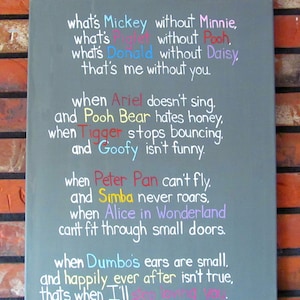 what's Mickey without Minnie,
what's Piglet without Pooh,
what's Donald without Daisy,
that's me without you.
when Ariel doesn't sing,
and Pooh Bear hates honey,
when Tigger stops bouncing,
and Goofy isn't funny.
when Peter Pan can't fly,
and Simba never roars,
when Alice in Wonderland
can't fit through small doors.
when Dumbo's ears are small,
and happily ever after isn't true,
that's when I'll